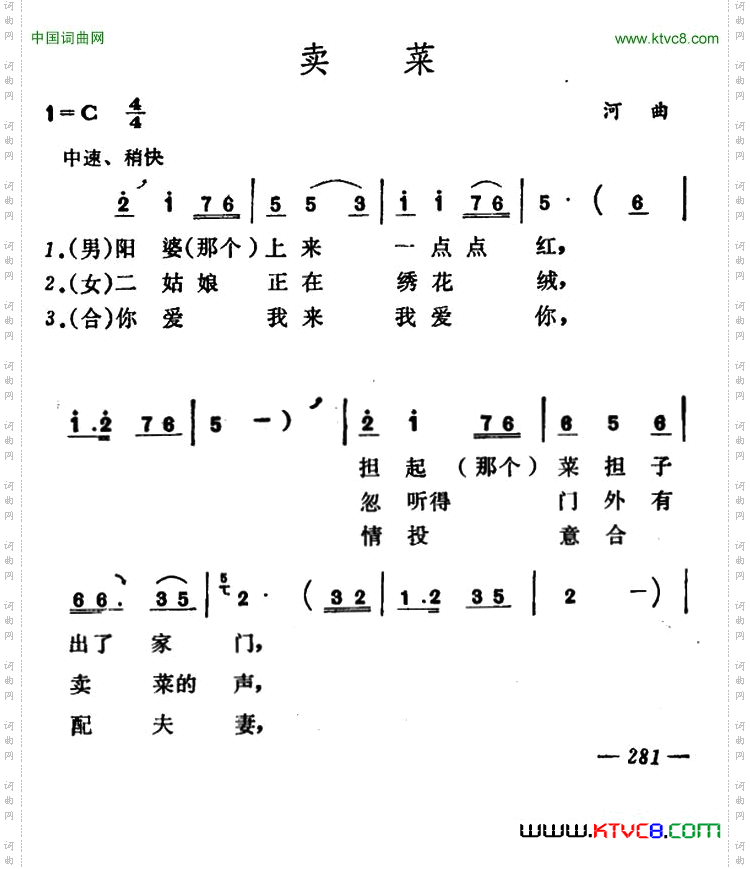 中国词曲网
www.ktvc8.com
卖 菜
1=C 4/4
河 曲
中速、稍快
2 1 76 | 5 5 3 | 1 1 76 | 5 · ( 6 |
1.(男)阳 婆(那个)上来 一点点 红,
2.(女)二 姑娘 正在 绣花 绒,
3.(合)你 爱 我来 我爱 你,
1.2 76 | 5 — ) | 2 1 76 | 6 5 6 |
担起(那个)菜担子
忽听得 门外有
情投 意合
66. 35 | 5 2 · ( 32 | 1.2 35 | 2 — ) |
出了 家 门,
卖 菜的 声,
配 夫 妻,
— 281 —
www.KTVC8.com